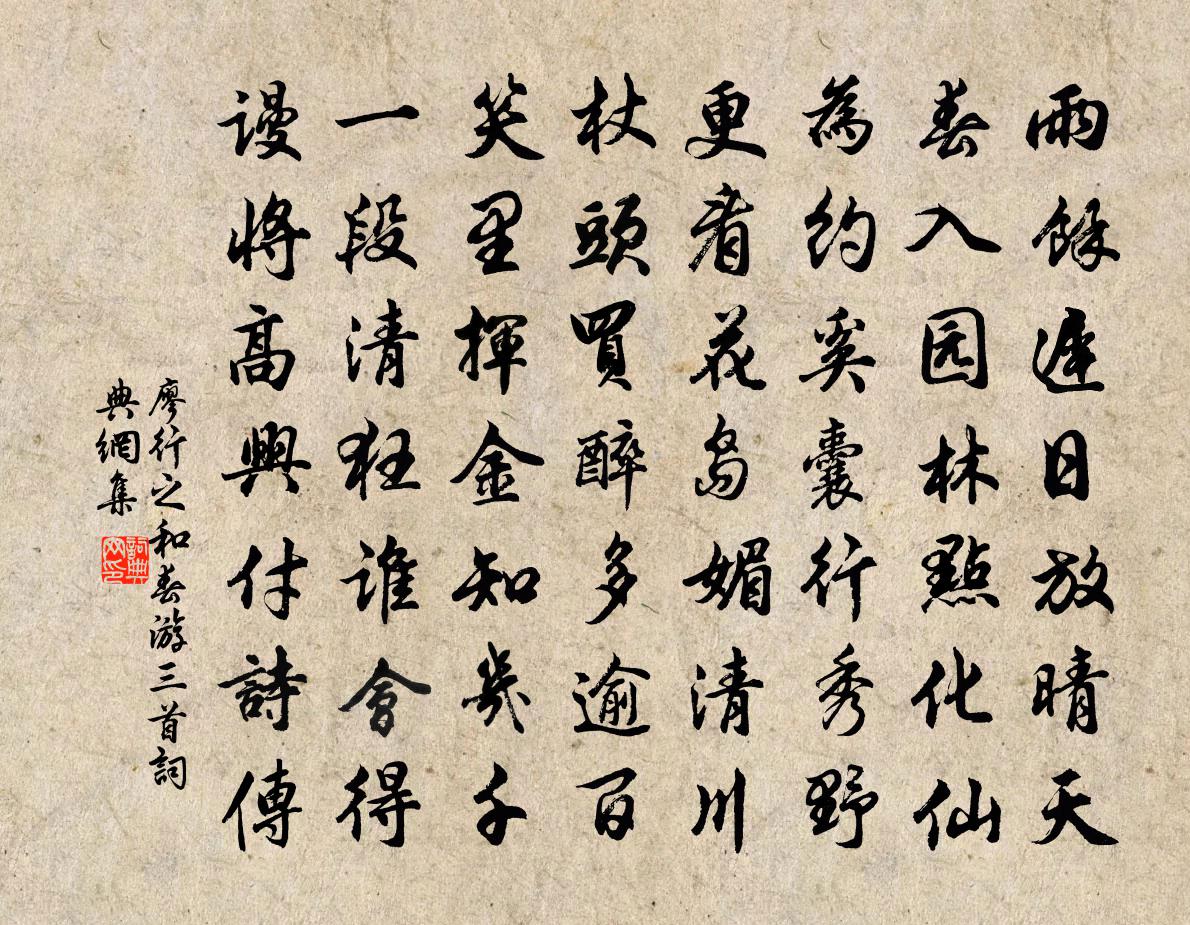 雨餘遲日放晴天
春入园林點化仙
為約奚囊行秀野
更看花島媚清川
杖頭買醉多逾百
笑里揮金知幾千
一段清狂誰會得
谩將高興付詩傳
廖行之和春游三首詞
典網集
詞典
网印